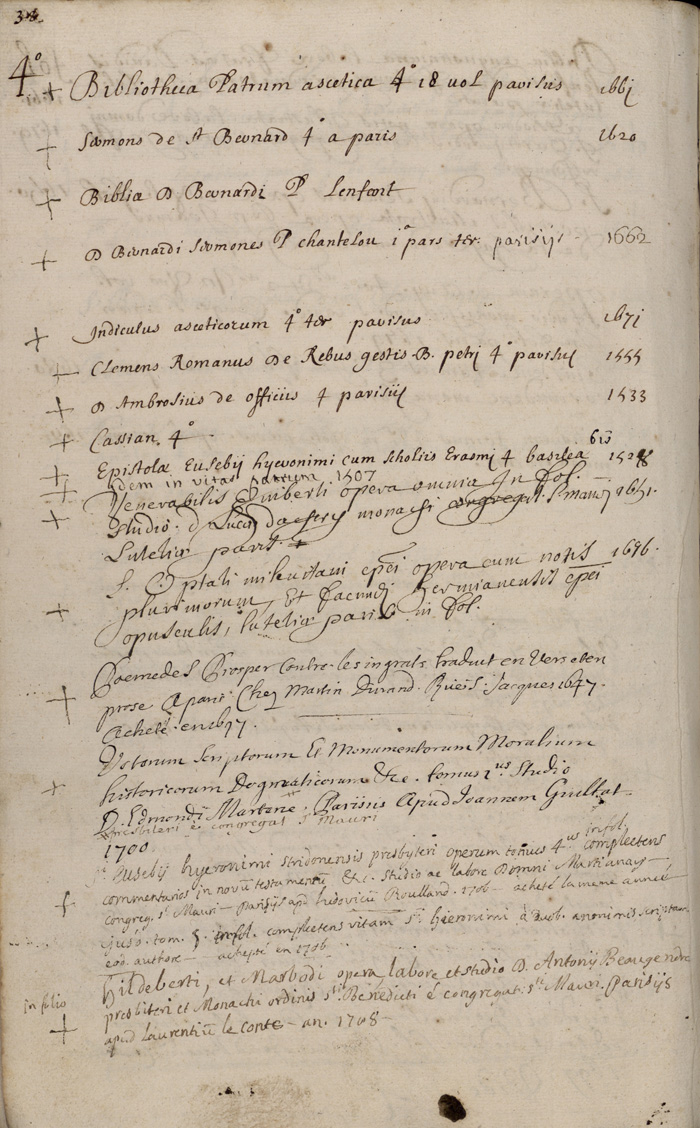 38.
4° + Bibliotheca Patrum ascetica 4° 18 vol parisiis 1661
+ Sermons de st Bernard 4° a paris 1620
+ Biblia D Bernardi P Lenfant
+ D Bernardi Sermones P chantelou 1a pars ter. parisijs 1662
+ Indiculus asceticorum 4° ter parisiis 1671
+ Clemens Romanus De Rebus gestis B. petrj 4° parisiis 1555
+ D Ambrosius de officiis 4 parisijs 1533
+ Cassian. 4°
+ Epistolæ Eusebij hyeronimi cum scholiis Erasmj 4 basilea bis
+ idem in vitas patrum 1507
Venerabilis Guiberti opera omnia In fol.
+ studio d. Lucæ monachi congregat. S. mauri 1651.
Luteliæ paris.
S. Optati milevitani epēi opera cum notis 1676.
+ plurimorum, Et facundj hermianensis epēi
opusculis, lutetiæ paris in fol.
Poeme de S. Prosper Contre les ingrats, traduit en Vers et en
+ prose. A paris Chez Martin Durand. Rue S. Jacques 1647.
Acheté en 1697.
Veterum Scriptorum Et Monumentorum Moralium
+ historicorum Dogmaticorum &c. tomus 1.us Studio
D. Edmondi Martene, Parisiis Apud Joannem Guillot
presbiteri è congregat st Mauri
1700
Sti Eusebij hyeronimi stridonensis presbyteri operum tomus 4.us infol. complectens
commentarios in novū testamentū &c. studio ac labore Domni Martianay
+ congreg. sti Mauri - parisijs apud ludovicū Roulland. 1706 - acheté la meme année
5. infol. complectens vitam sti hieronimi à anonimis scriptam
eod. authore - achepté en 1706
Hildeberti, et Marbodi opera labore et studio D. Antonij Beaugendre
in folio presbiteri et Monachi ordinis sti Benedicti é congregat. sti Mauri. Parisijs
+ apud laurentiū le conte - an. 1708 -